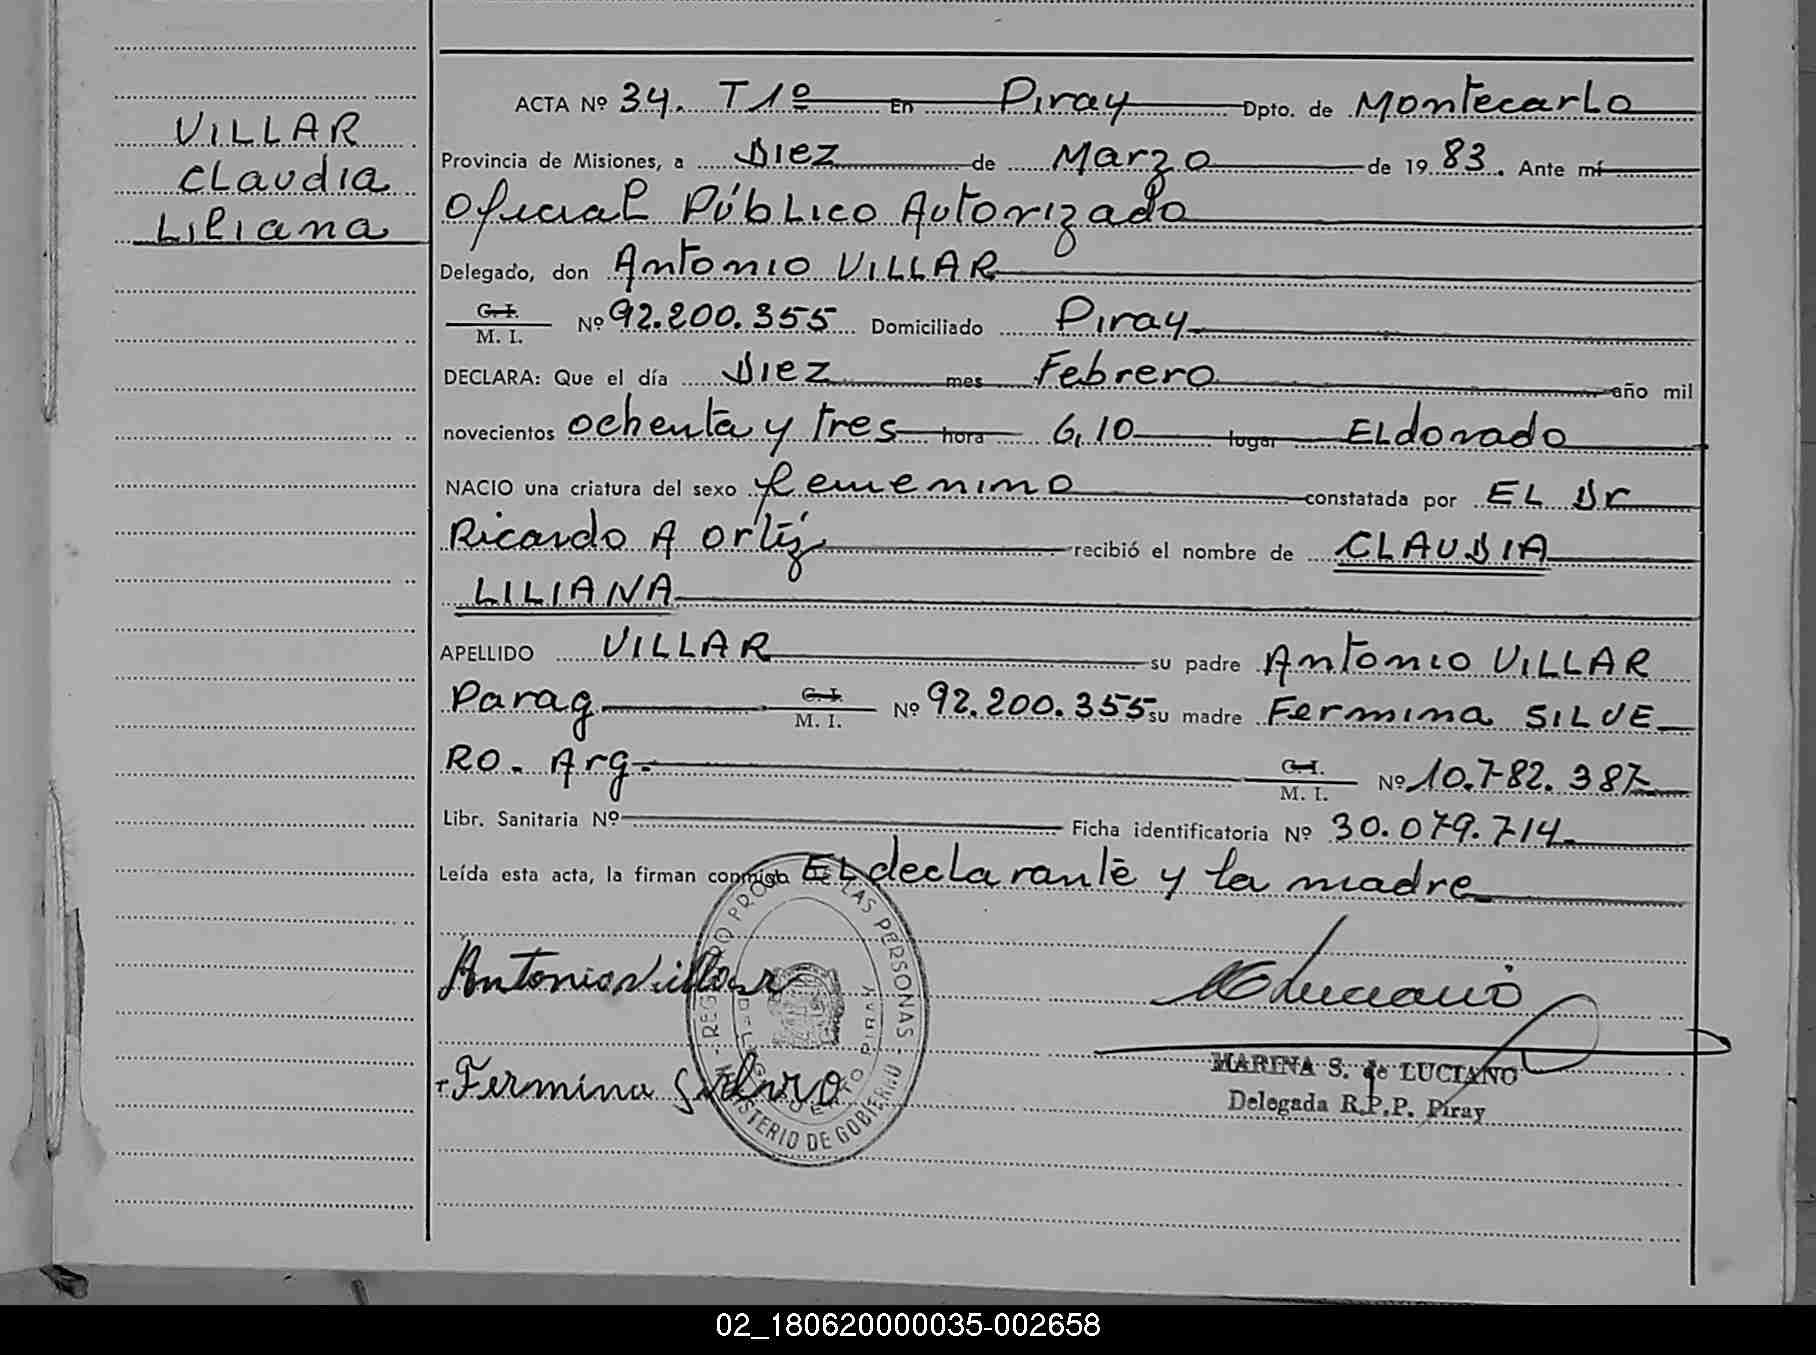 VILLAR
Claudia
Liliana
ACTA Nº 34. T1º En Piray Dpto. de Montecarlo
Provincia de Misiones, a Diez de Marzo de 1983. Ante mí
Oficial Público Autorizado
Delegado, don Antonio VILLAR
C. I.
M. I. Nº 92.200.355 Domiciliado Piray
DECLARA: Que el día Diez mes Febrero año mil
novecientos ochenta y tres hora 6,10 lugar Eldorado
NACIO una criatura del sexo femenino constatada por EL Dr
Ricardo A Ortíz recibió el nombre de CLAUDIA
LILIANA
APELLIDO VILLAR su padre Antonio VILLAR
Parag C. I.
M. I. Nº 92.200.355 su madre Fermina SILVE
RO. Arg. C. I.
M. I. Nº 10.782.387
Libr. Sanitaria Nº Ficha identificatoria Nº 30.079.714
Leída esta acta, la firman conmigo EL declarante y la madre
Antonio Villar
Fermina Silvero
Luciano
MARINA S. de LUCIANO
Delegada R.P.P. Piray
REGISTRO PROV. DE LAS PERSONAS
MINISTERIO DE GOBIERNO
PIRAY
02_180620000035-002658